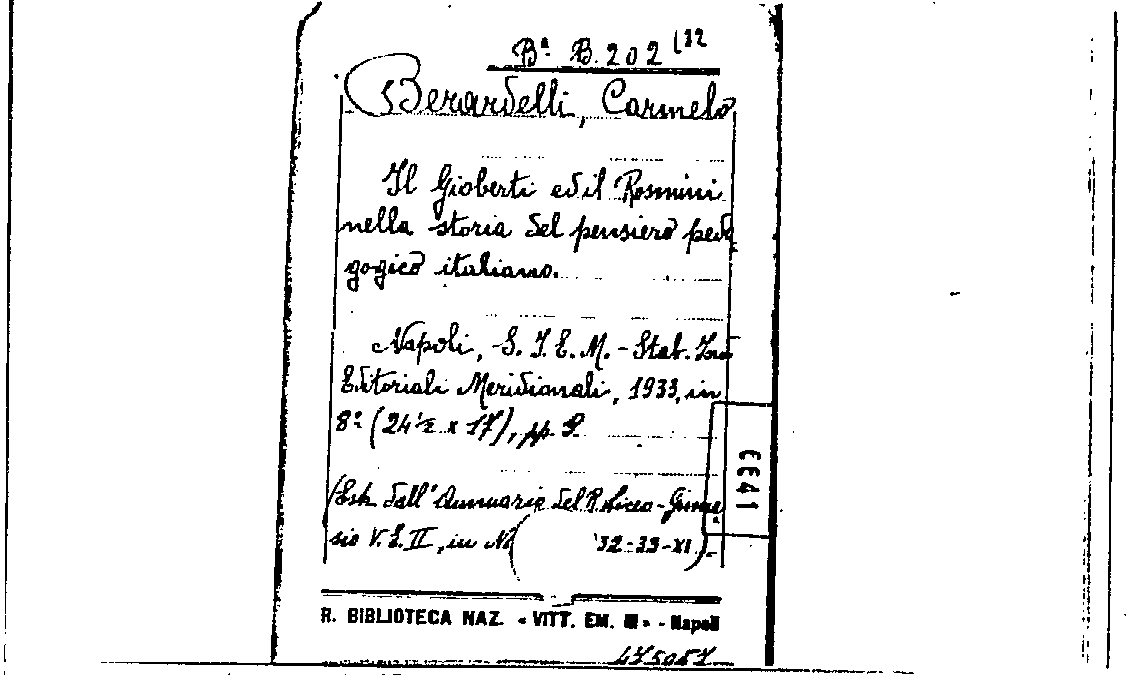 Bª B. 202 (32
Berardelli, Carmelo
Il Gioberti ed il Rosmini
nella storia del pensiero peda
gogico italiano.
Napoli, S. I. E. M. - Stab. Ind
Editoriali Meridionali, 1933, in
8° (24½ x 17), pp. 9.
(Estr. dall'Annuario del R. Liceo-Ginna
sio V. E. II, in Na '32-33-XI).
1433
R. BIBLIOTECA NAZ. « VITT. EM. III » - Napoli
475057